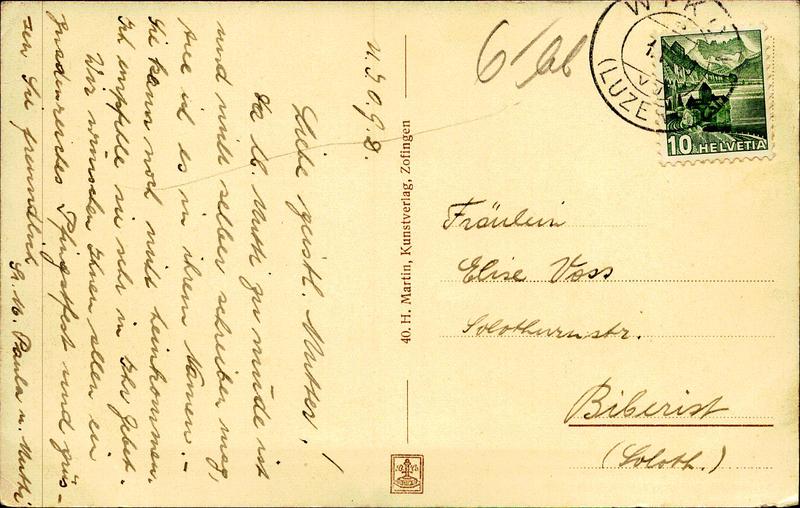 U. J. O. G. D.
Liebe geistl. Mutter,!
Da lb. Mutti zu müde ist
und nicht selber schreiben mag,
tue ich es in ihrem Namen. -
Sie kann noch nicht heimkommen.
Ich empfehle sie sehr in Ihr Gebet.
Wir wünschen Ihnen allen ein
gnadenreiches Pfingstfest und grüs-
sen Sie freundlich
Sr. M. Paula u. Mutti
40. H. Martin, Kunstverlag, Zofingen
6/bb
(LUZE
10 HELVETIA
Fräulein
Elise Voss
Solothurnstr.
Biberist
(Soloth.)